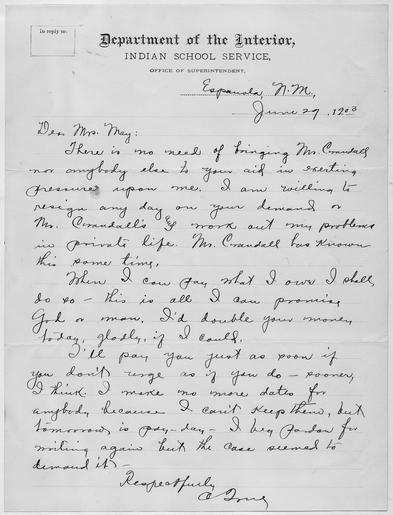 In reply to:
Department of the Interior,
INDIAN SCHOOL SERVICE,
OFFICE OF SUPERINTENDENT,
Espanola, N.M.,
June 29, 1903
Dear Mrs. May:
There is no need of bringing Mr. Crandall
nor anybody else to your aid in exerting
pressure upon me. I am willing to
resign any day on your demand or
Mr. Crandall's & work out my problems
in private life. Mr. Crandall has known
this some time.
When I can pay what I owe I shall
do so – this is all I can promise
God or man. I'd double your money
today, gladly, if I could.
I'll pay you just as soon if
you don't urge as if you do – sooner,
I think. I make no more dates for
anybody because I can't keep them, but
tomorrow is pay-day – I beg pardon for
writing again but the case seemed to
demand it –
Respectfully
C True